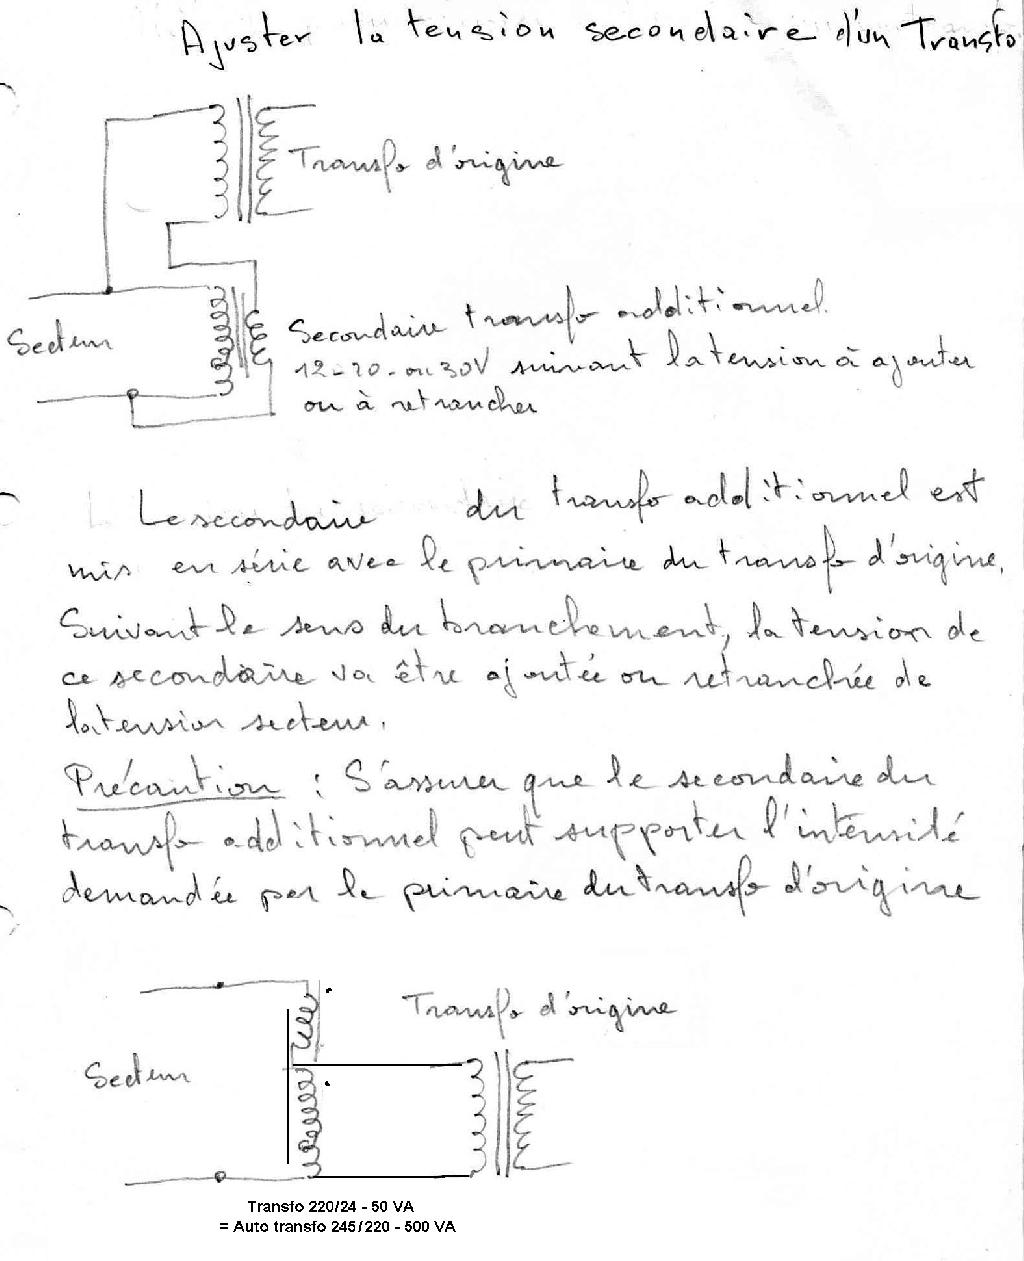 Ajuster la tension secondaire d'un Transfo
Transfo d'origine
Secteur
Secondaire transfo additionnel.
12-20-ou 30V suivant la tension à ajouter
ou à retrancher
Le secondaire du transfo additionnel est
mis en série avec le primaire du transfo d'origine.
Suivant le sens du branchement, la tension de
ce secondaire va être ajoutée ou retranchée de
la tension secteur.
Précaution : S'assurer que le secondaire du
transfo additionnel peut supporter l'intensité
demandée par le primaire du transfo d'origine
Transfo d'origine
Secteur
Transfo 220/24 - 50 VA
= Auto transfo 245/220 - 500 VA